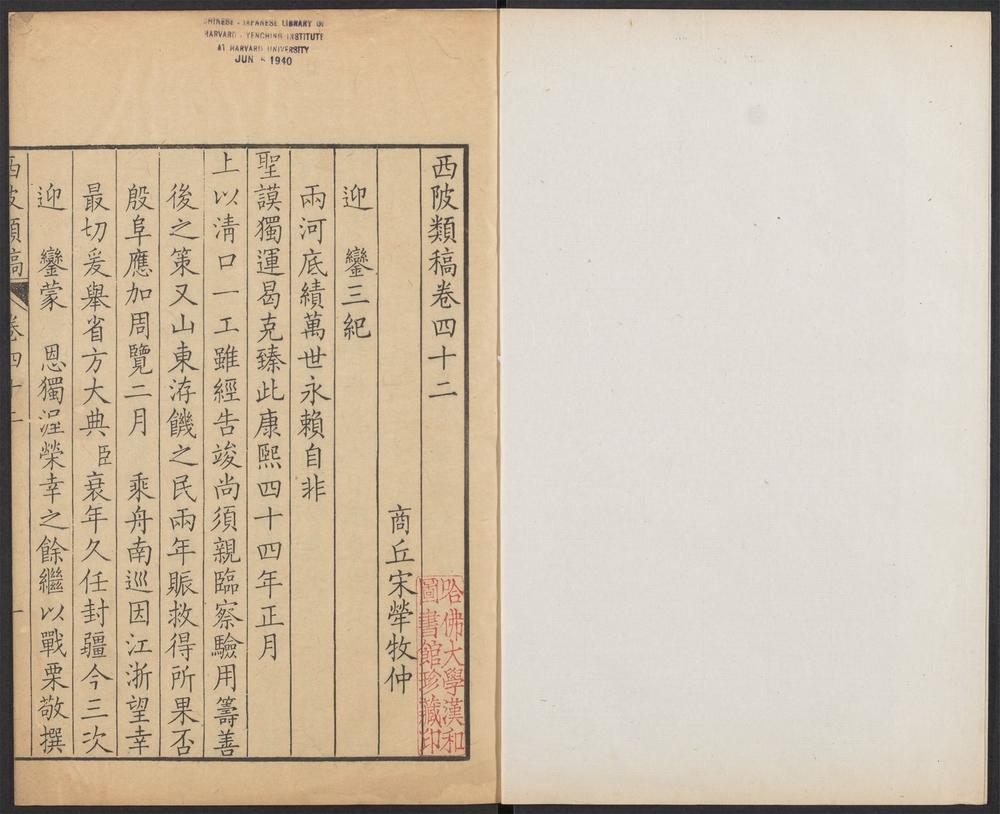 CHINESE - JAPANESE LIBRARY OF
HARVARD - YENCHING INSTITUTE
AT HARVARD UNIVERSITY
JUN 1940
西陂類稿卷四十二
商丘宋犖牧仲
迎　鑾三紀
兩河底績萬世永賴自非
聖謨獨運曷克臻此康熙四十四年正月
上以淸口一工雖經告竣尚須親臨察驗用籌善
後之策又山東洊饑之民兩年賑救得所果否
殷阜應加周覽二月　乘舟南巡因江浙望幸
最切爰舉省方大典臣衰年久任封疆今三次
迎　鑾蒙　恩獨渥榮幸之餘繼以戰栗敬撰
西陂類稿　卷四十二　一
哈佛大學漢和
圖書館珍藏印